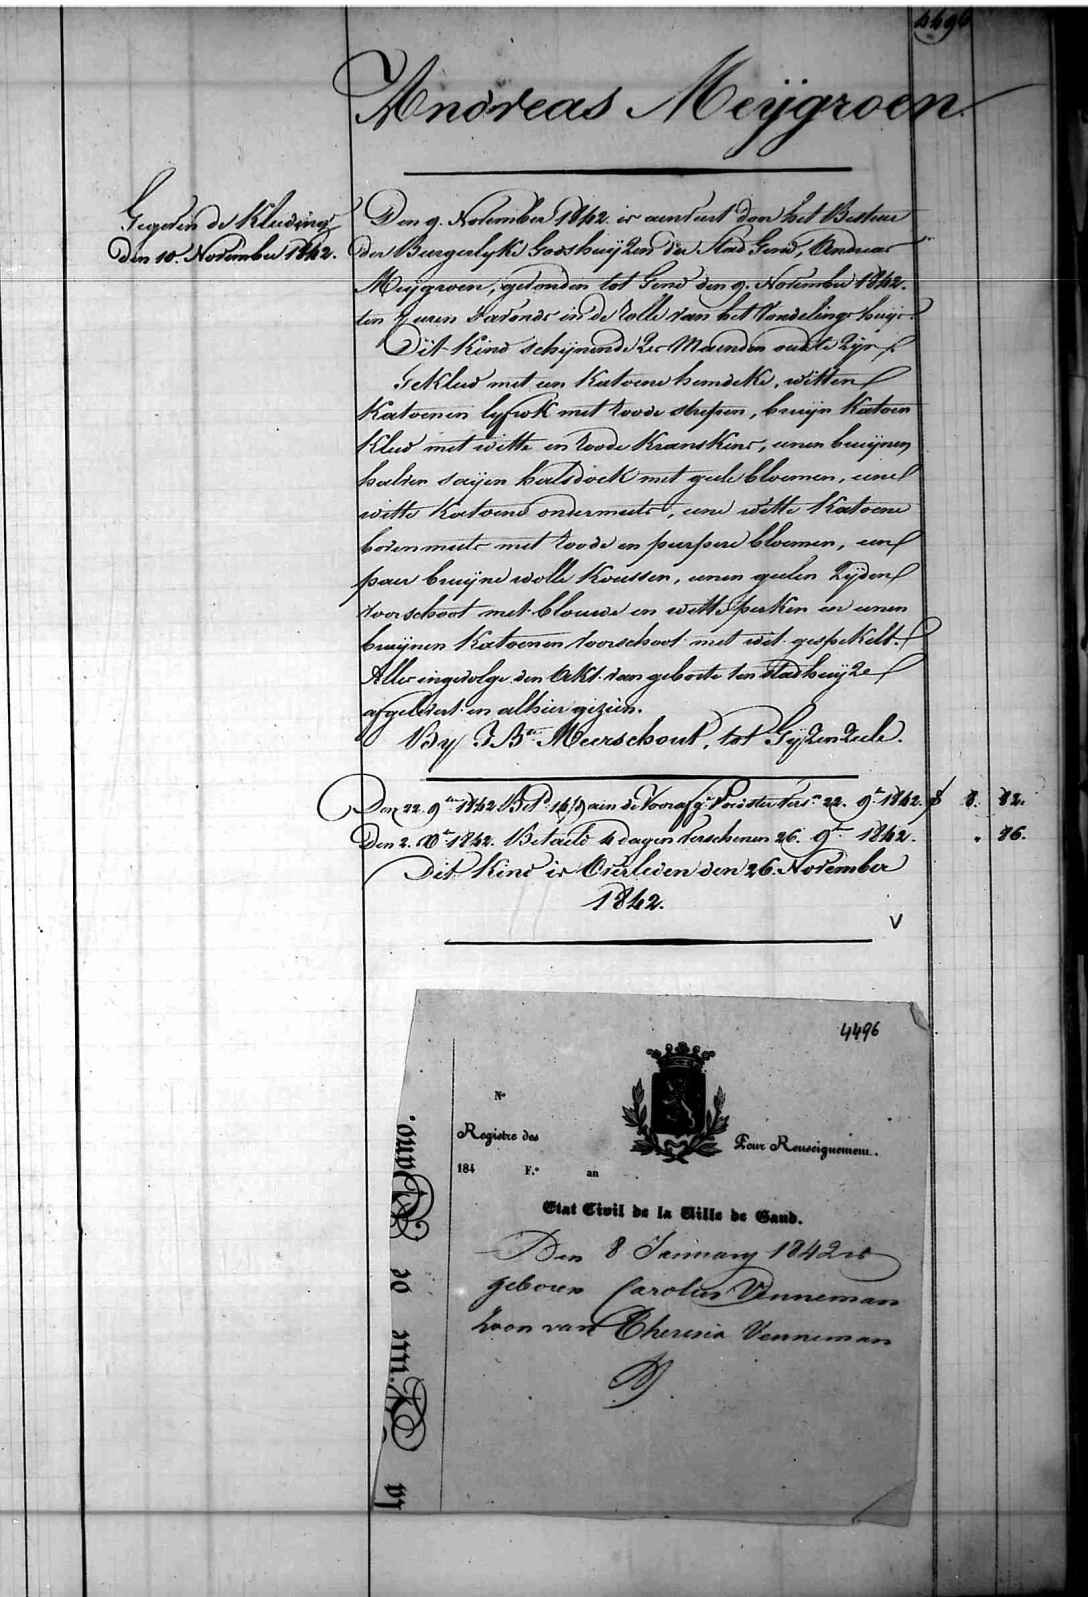 4496
Andreas Meijgroen
Gegeven de Kleeding
den 10. November 1842.
Den 9. November 1842. is aenveert door het Bestuur
der Burgerlyke Godshuijzen der Stad Gend, Andreas
Meijgroen, gevonden tot Gend den 9. November 1842.
ten 7 uren s'avonds in de rolle van het Vondelingshuijs.
Dit Kind schijnende zes Maenden oud te zijn
Gekleed met een Katoene hemdeke, witten
Katoenen lyfrok met roode strepen, bruijn Katoen
Kleed met witte en roode Kranskens, eenen bruijnen
halven saijen halsdoek met geele bloemen, eene
witte Katoene ondermuts, eene witte Katoene
bovenmuts met roode en purpere bloemen, een
paer bruijne wolle Koussen, eenen geelen Zijden
voorschoot met blouwe en witte perken en eenen
bruijnen Katoenen voorschoot met wit gespekelt.
Alles ingevolge den Akt van geboorte ten stadhuijze
afgelevert en alhier gezien.
By J. Bte Meerschout, tot Gijzenzeele.
Den 22. 9ber 1842 Betd aen de Voorafge Voedster Versn 22. 9br 1842. 8. 82.
Den 2. Xbr 1842. Betaeld 4 dagen verschenen 26. 9br 1842. " 76.
Dit Kind is Overleden den 26. November
1842.
V
4496
N°
Registre des
Pour Renseignement.
184 F.° an
Etat Civil de la Ville de Gand.
Den 8 January 1842 is
geboren Carolus Venneman
zoon van Theresia Venneman
la Ville de Gand.